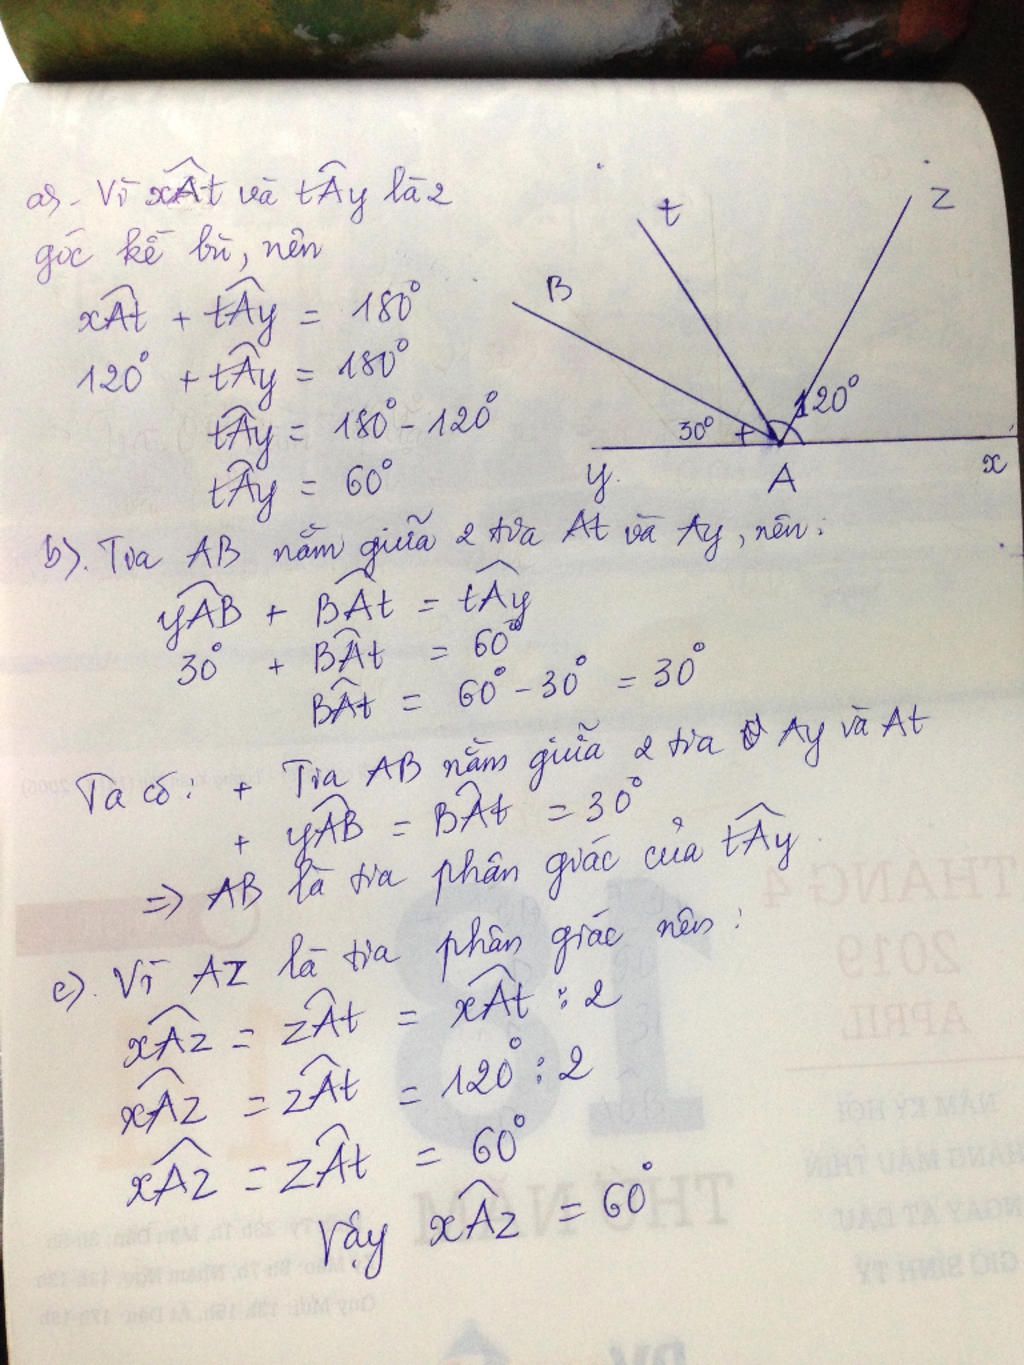 a). Vì xÂt và tÂy là 2
góc kề bù, nên
xÂt + tÂy = 180°
120° + tÂy = 180°
tÂy = 180° - 120°
tÂy = 60°
t
z
B
120°
30°
y
A
x
b). Tia AB nằm giữa 2 tia At và Ay, nên:
yÂB + BÂt = tÂy
30° + BÂt = 60°
BÂt = 60° - 30° = 30°
Ta có: + Tia AB nằm giữa 2 tia Ay và At
+ yÂB = BÂt = 30°
=> AB là tia phân giác của tÂy
c). Vì AZ là tia phân giác nên:
xÂz = zÂt = xÂt : 2
xÂz = zÂt = 120° : 2
xÂz = zÂt = 60°
Vậy xÂz = 60°
THANG 4
2019
APRIL
18
THỨ NĂM